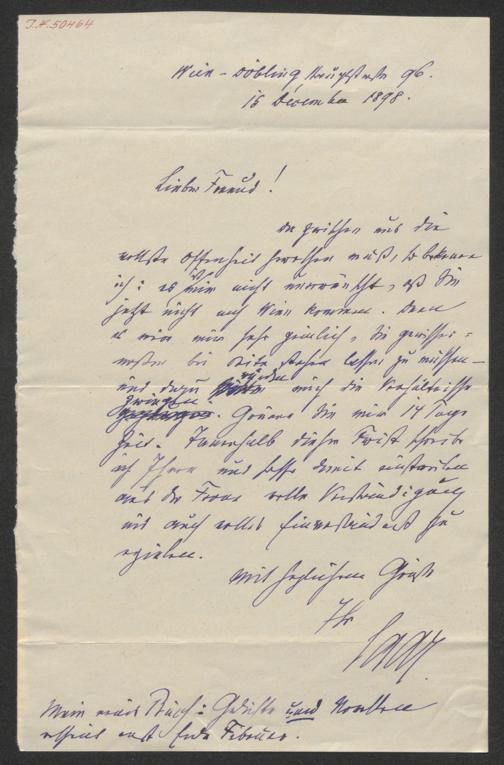 I.N. 50464
Wien-Döbling Hauptstraße 96.
15 December 1898.
Lieber Freund!
Da zwischen uns die
vollste Offenheit herrschen muß, so bekenne
ich: es käme mir nicht unerwünscht, daß Sie
jetzt nicht nach Wien kommen. Denn
es wäre mir sehr peinlich, Sie gewisser-
maßen bei Seite stehen lassen zu müssen –
und dazu würden mich die Verhältnisse
zwingen. Gönnen Sie mir 14 Tage
Zeit. Innerhalb dieser Frist schreibe
ich Ihnen und hoffe damit
aus der Ferne volle Verständigung
und auch volles Einverständniß zu
erzielen.
Mit herzlichem Gruße
Ihr
Saar
Mein neues Buch: Gedichte und Novellen
erscheint erst Ende Februar.